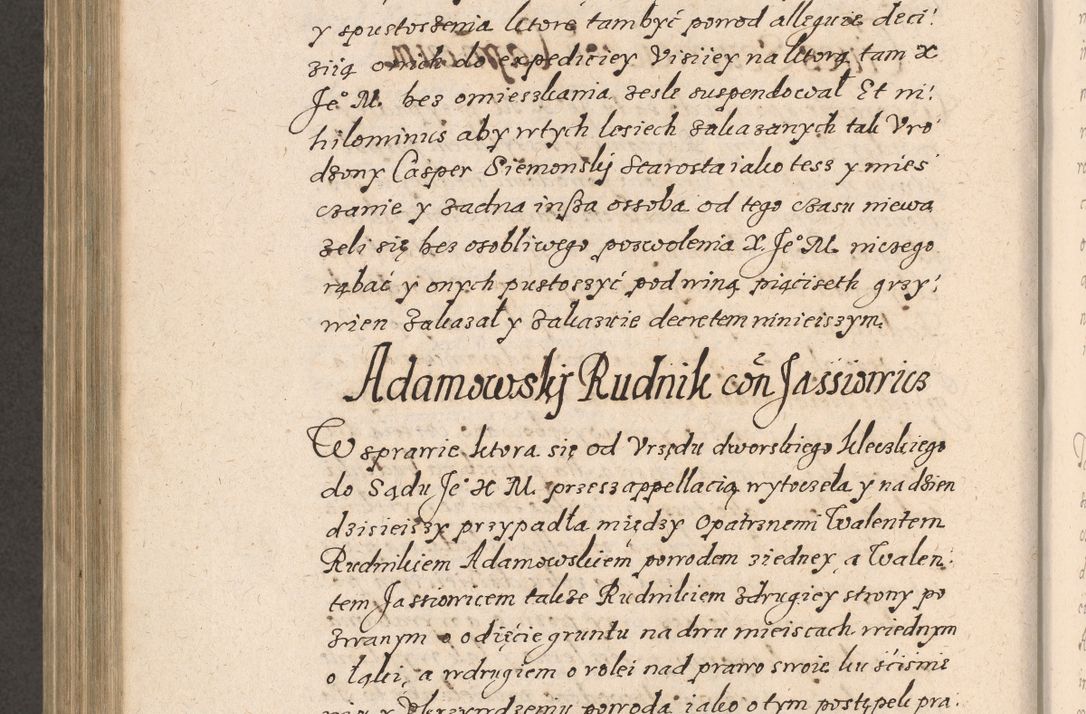 y spustoszenia ktore tam być powod alleguie deci:
ziią o nich do expediciey Visiiey na ktorą tam X
Je° M. bez omieszkania zesle suspendował Et ni:
hilominus aby w tych lesiech zakazanych tak Vro
dzony Casper Siemonskj Starosta iako tesz y miesz
czanie y żadna inßa ossoba od tego czasu niewa
zeli się bez osobliwego poswolenia X. Je° M. niczego
rąbać y onych pustoszyć pod winą piąćiseth grzy:
wien zakazał y zakazuie decretem ninieiszym.
Adamowskj Rudnik con Jassiowicz
W sprawie ktora się od Vrzędu dworskiego kleczkiego
do Sądu Je° X M. przesz appellacią wytoczeła y na dzien
dzisieiszy przypadła między Opatrznemi Walentem
Rudnikiem Adamowskiem powodem z iedney, a Walen:
tem Jassiowicem takze Rudnikiem z drugiey strony po
zwanym o odięcie gruntu na dwu mieiscach w iednym
o łąki, a w drugiem o rolei nad prawo swoie ku sciśnie
niu y Vkrzywdzeniu powoda iako o tym postępek pra: